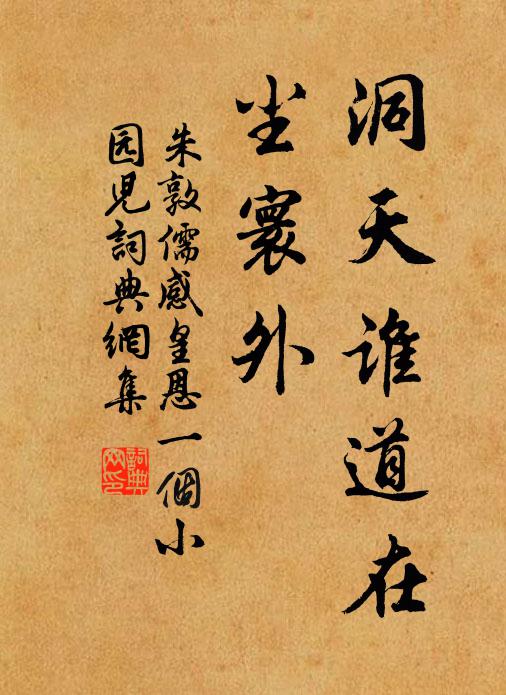 洞天谁道在
尘寰外
朱敦儒感皇恩一個小
园児詞典網集
詞典
网印